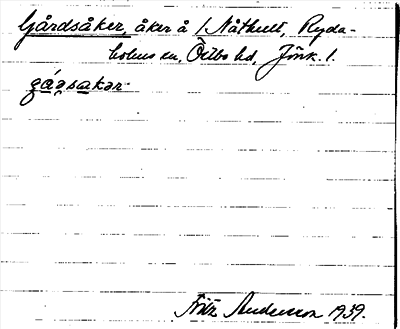 Gårdsåker, åker å 1 Nåthult, Ryda-
holms sn, Östbo hd, Jönk. l.
gásakər
Andersson 1939.